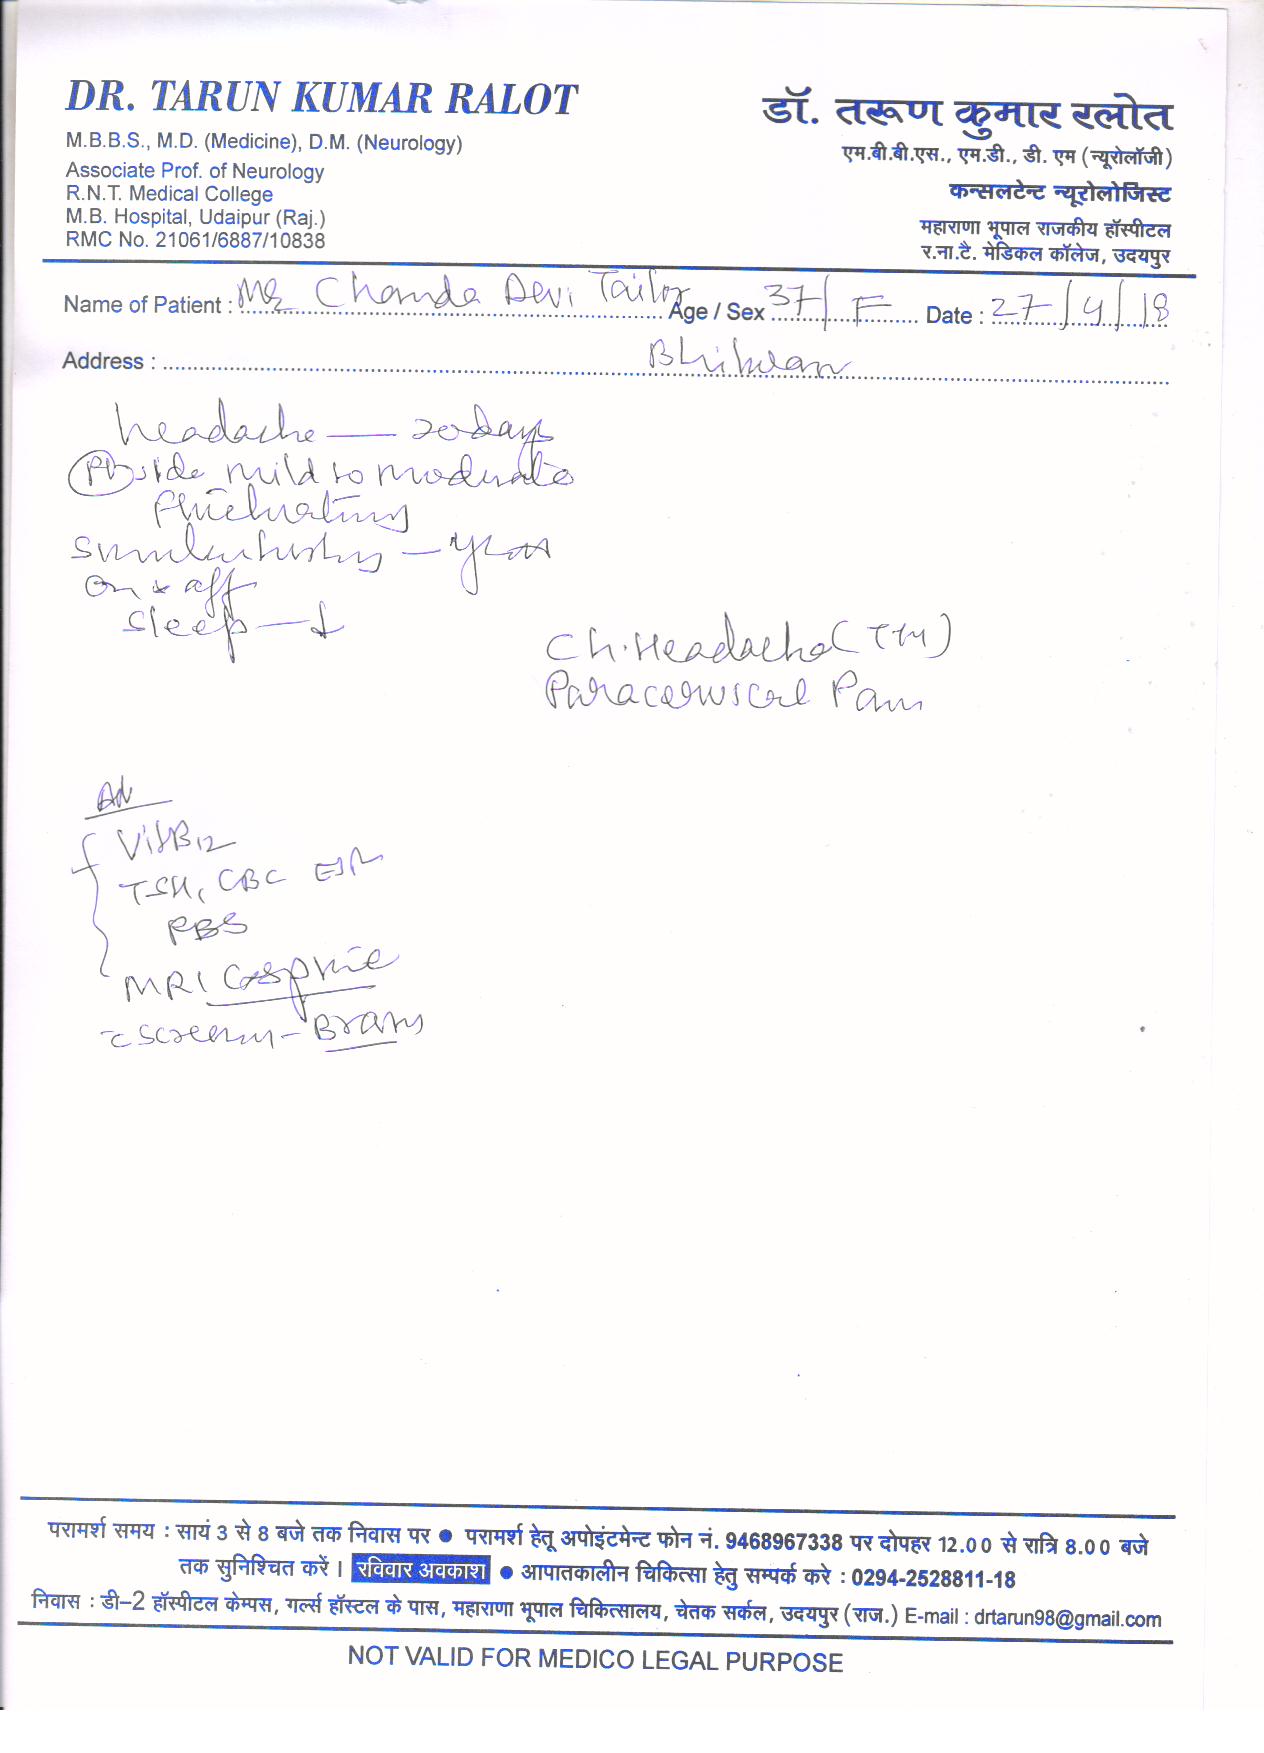 DR. TARUN KUMAR RALOT
M.B.B.S., M.D. (Medicine), D.M. (Neurology)
Associate Prof. of Neurology
R.N.T. Medical College
M.B. Hospital, Udaipur (Raj.)
RMC No. 21061/6887/10838
डॉ. तरूण कुमार रलोत
एम.बी.बी.एस., एम.डी., डी. एम (न्यूरोलॉजी)
कन्सलटेन्ट न्यूरोलोजिस्ट
महाराणा भूपाल राजकीय हॉस्पीटल
र.ना.टै. मेडिकल कॉलेज, उदयपुर
Name of Patient : Chanda Devi Tailor Age / Sex 37/F Date : 27/4/18
Address :
headache — 20 days
side mild to moderate
fluctuating
on & off
sleep —
Ch. Headache (TTH)
Paracervical Pain
Adv
Vit B12
TSH, CBC ESR
RBS
MRI C-spine
screening Brain
परामर्श समय : सायं 3 से 8 बजे तक निवास पर ● परामर्श हेतू अपोइंटमेन्ट फोन नं. 9468967338 पर दोपहर 12.00 से रात्रि 8.00 बजे
तक सुनिश्चित करें । रविवार अवकाश ● आपातकालीन चिकित्सा हेतु सम्पर्क करे : 0294-2528811-18
निवास : डी–2 हॉस्पीटल केम्पस, गर्ल्स हॉस्टल के पास, महाराणा भूपाल चिकित्सालय, चेतक सर्कल, उदयपुर (राज.) E-mail : drtarun98@gmail.com
NOT VALID FOR MEDICO LEGAL PURPOSE